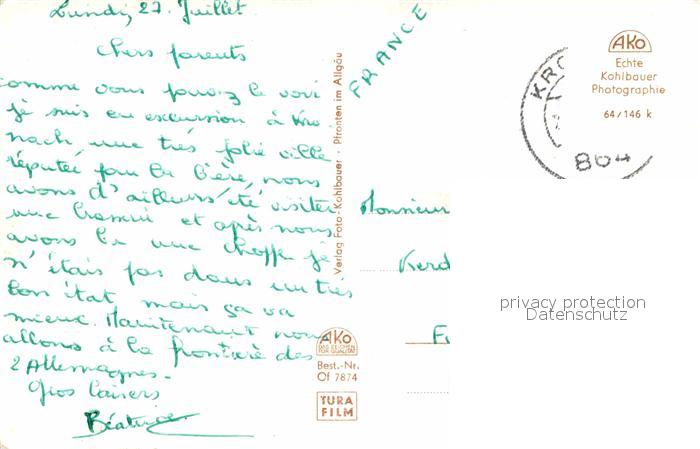 Lundi, 27 Juillet
Chers parents
comme vous pouvez le voir
je suis en excursion à Kro
nach, une très jolie ville
réputée pour la bière, nous
avons d'ailleurs été visiter
une et après nous
avons bu une choppe je
n'étais pas dans un très
bon état, mais ça va
mieux. Maintenant nous
allons à la frontière des
2 Allemagnes.
Gros baisers
Béatrice
Verlag Foto-Kohlbauer · Pfronten im Allgäu
AKO
DAS ZEICHEN
FÜR QUALITÄT
Best.-Nr.
Of 7874
TURA
FILM
FRANCE
AKO
Echte
Kohlbauer
Photographie
64/146 k
KRO
864
Monsieur
Kerd
privacy protection
Datenschutz